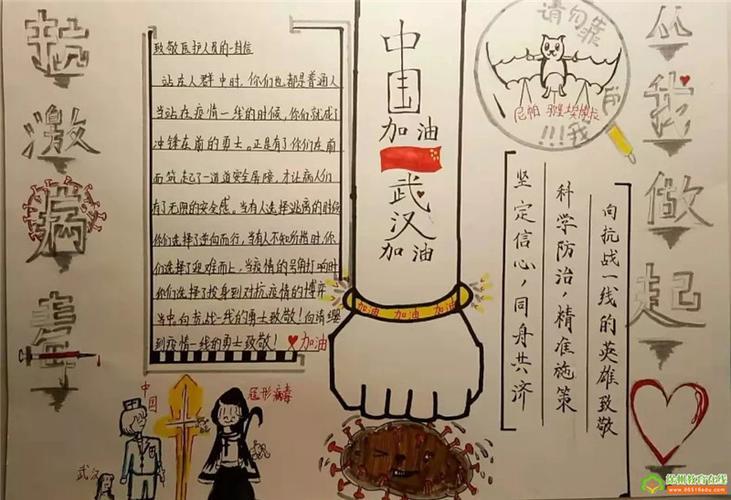 抗激病毒
致敬医护人员的一封信
站在人群中时,你们也都是普通人
当站在疫情一线的时候,你们就成了
冲锋在前的勇士。正是有了你们在前
面筑起了一道道安全屏障,才让病人们
有了无限的安全感。当有人选择逃离的时候
你们选择了逆向而行。当有人不知所措时,你
们选择了迎难而上,当疫情的号角打响时
你们选择了投身到对抗疫情的博弈
当中,向抗战一线的勇士致敬!向
到疫情一线的勇士致敬!
加油
中国
加油
武汉
加油
加油 加油 加油
请勿靠
尼帕 埃博拉
!!!我
从我做起
向抗战一线的英雄致敬
科学防治,精准施策
坚定信心,同舟共济
中国
冠形病毒
武汉
徐州教育在线
www.06516edu.com